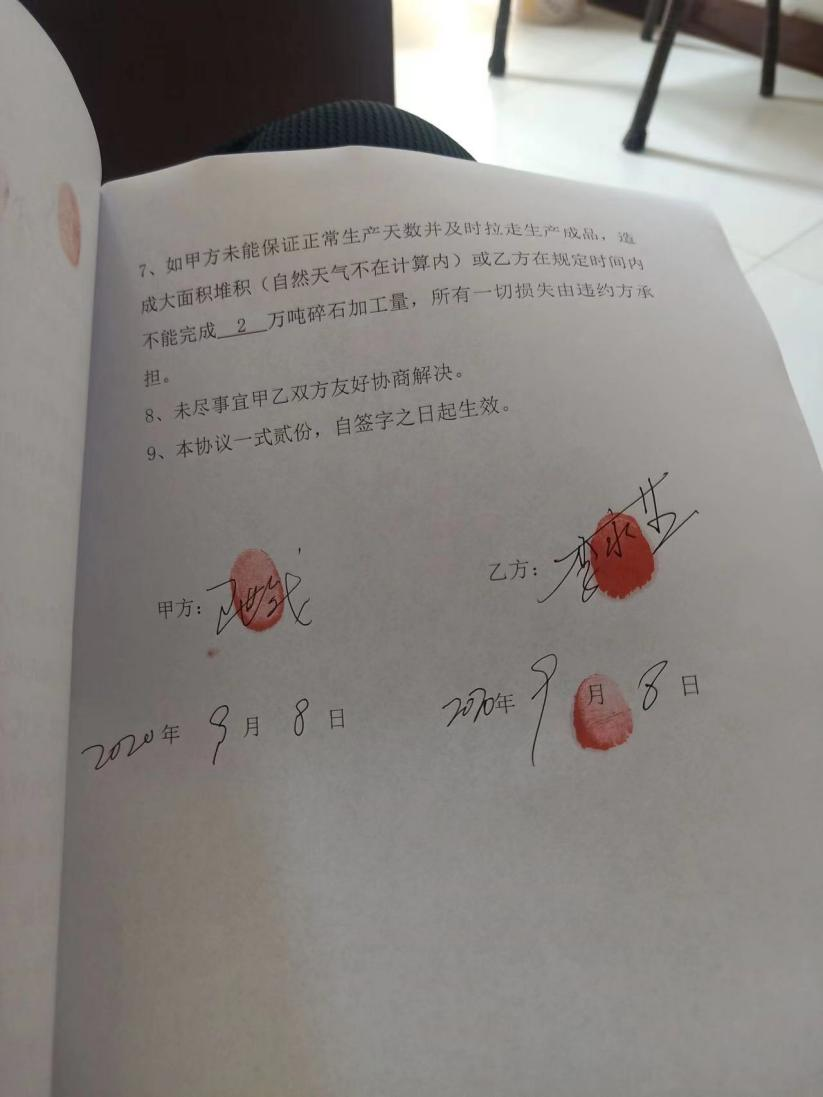 7、如甲方未能保证正常生产天数并及时拉走生产成品，造
成大面积堆积（自然天气不在计算内）或乙方在规定时间内
不能完成 2 万吨碎石加工量，所有一切损失由违约方承
担。
8、未尽事宜甲乙双方友好协商解决。
9、本协议一式贰份，自签字之日起生效。
甲方：
乙方：
2020年 9月 8日
2020年 9月 8日